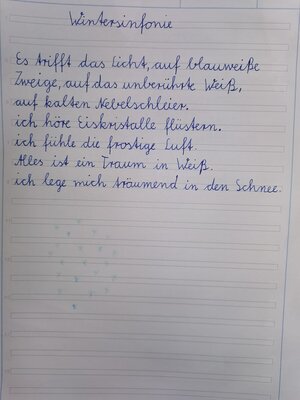 Wintersinfonie
Es trifft das Licht, auf blauweiße
Zweige, auf das unberührte Weiß,
auf kalten Nebelschleier.
ich höre Eiskristalle flüstern.
ich fühle die frostige Luft.
Alles ist ein Traum in Weiß.
ich lege mich träumend in den Schnee.